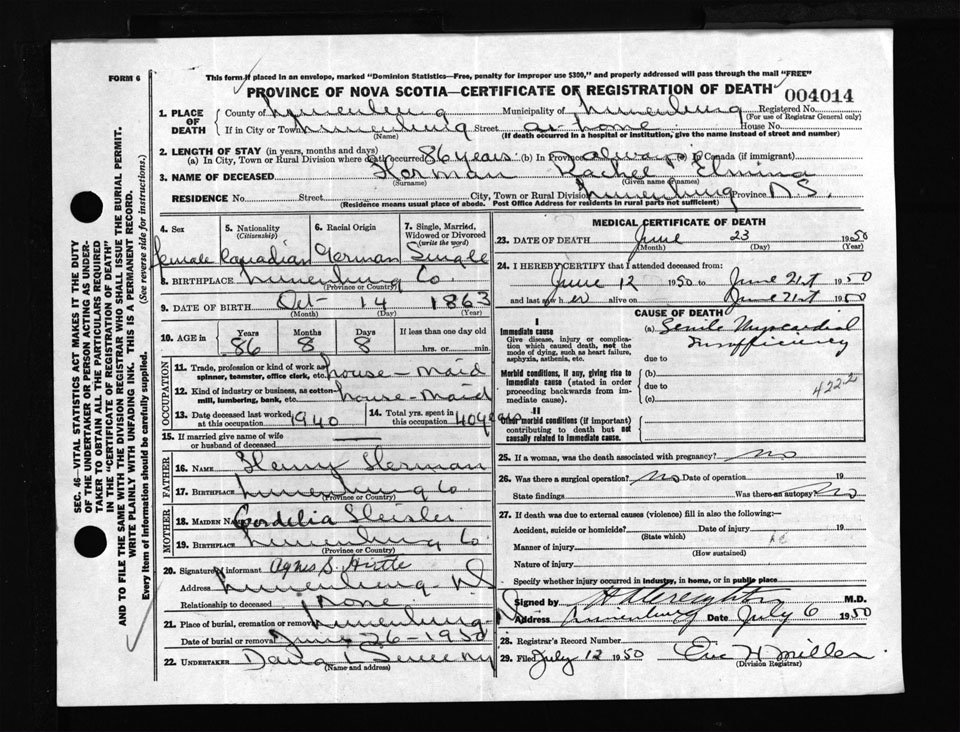 This form if placed in an envelope, marked "Dominion Statistics—Free, penalty for improper use $300," and properly addressed will pass through the mail "FREE"
FORM 6
PROVINCE OF NOVA SCOTIA—CERTIFICATE OF REGISTRATION OF DEATH
004014
1. PLACE OF DEATH
County of Lunenburg Municipality of Lunenburg Registered No.
(For use of Registrar General only)
If in City or Town Lunenburg Street at home House No.
(Name) (If death occurred in a hospital or institution, give the name instead of street and number)
2. LENGTH OF STAY (in years, months and days)
(a) In City, Town or Rural Division where death occurred 86 years (b) In Province always (c) In Canada (if immigrant)
3. NAME OF DECEASED Herman Rachel Elmina
(Surname) (Given name or names)
RESIDENCE No. Street City, Town or Rural Division Lunenburg Province N.S.
(Residence means usual place of abode. Post Office Address for residents in rural parts not sufficient)
4. Sex
female
5. Nationality (Citizenship)
Canadian
6. Racial Origin
German
7. Single, Married, Widowed or Divorced (write the word)
Single
8. BIRTHPLACE Lunenburg Co.
(Province or County)
9. DATE OF BIRTH Oct- 14 1863
(Month) (Day) (Year)
10. AGE in Years Months Days If less than one day old
86 8 8 hrs. or min.
OCCUPATION
11. Trade, profession or kind of work as spinner, teamster, office clerk, etc. house-maid
12. Kind of industry or business, as cotton-mill, lumbering, bank, etc. house-maid
13. Date deceased last worked at this occupation 1940
14. Total yrs. spent in this occupation 40 years
15. If married give name of wife or husband of deceased
FATHER
16. NAME Henry Herman
17. BIRTHPLACE Lunenburg Co
(Province or Country)
MOTHER
18. MAIDEN NAME Cordelia Heisler
19. BIRTHPLACE Lunenburg Co.
(Province or Country)
20. Signature of informant Agnes S. Hirtle
Address Lunenburg N.S
Relationship to deceased None
21. Place of burial, cremation or removal Lunenburg N.S
Date of burial or removal June 26-1950
22. UNDERTAKER
(Name and address)
MEDICAL CERTIFICATE OF DEATH
23. DATE OF DEATH June 23 1950
(Month) (Day) (Year)
24. I HEREBY CERTIFY that I attended deceased from:
June 12 1950 to June 21st 1950
and last saw her alive on June 21st 1950
CAUSE OF DEATH
I
Immediate cause
Give disease, injury or complication which caused death, not the mode of dying, such as heart failure, asphyxia, asthenia, etc.
(a) Senile Myocardial
Insufficiency
due to
Morbid conditions, if any, giving rise to immediate cause (stated in order proceeding backwards from immediate cause)
(b)
due to
(c)
422.2
II
Other morbid conditions (if important) contributing to death but not causally related to immediate cause.
25. If a woman, was the death associated with pregnancy? No
26. Was there a surgical operation? No Date of operation 19
State findings Was there an autopsy? No
27. If death was due to external causes (violence) fill in also the following:—
Accident, suicide or homicide? Date of injury 19
(State which)
Manner of injury
(How sustained)
Nature of injury
Specify whether injury occurred in industry, in home, or in public place
Signed by H A Creighton M.D.
Address Lunenburg Date July 6 1950
28. Registrar's Record Number
29. Filed July 12 1950 Eric H Miller
(Division Registrar)
SEC. 46—VITAL STATISTICS ACT MAKES IT THE DUTY
OF THE UNDERTAKER OR PERSON ACTING AS UNDER-
TAKER TO OBTAIN ALL THE PARTICULARS REQUIRED
IN THE "CERTIFICATE OF REGISTRATION OF DEATH"
AND TO FILE THE SAME WITH THE DIVISION REGISTRAR WHO SHALL ISSUE THE BURIAL PERMIT.
WRITE PLAINLY WITH UNFADING INK. THIS IS A PERMANENT RECORD.
Every item of information should be carefully supplied. (See reverse side for instructions.)